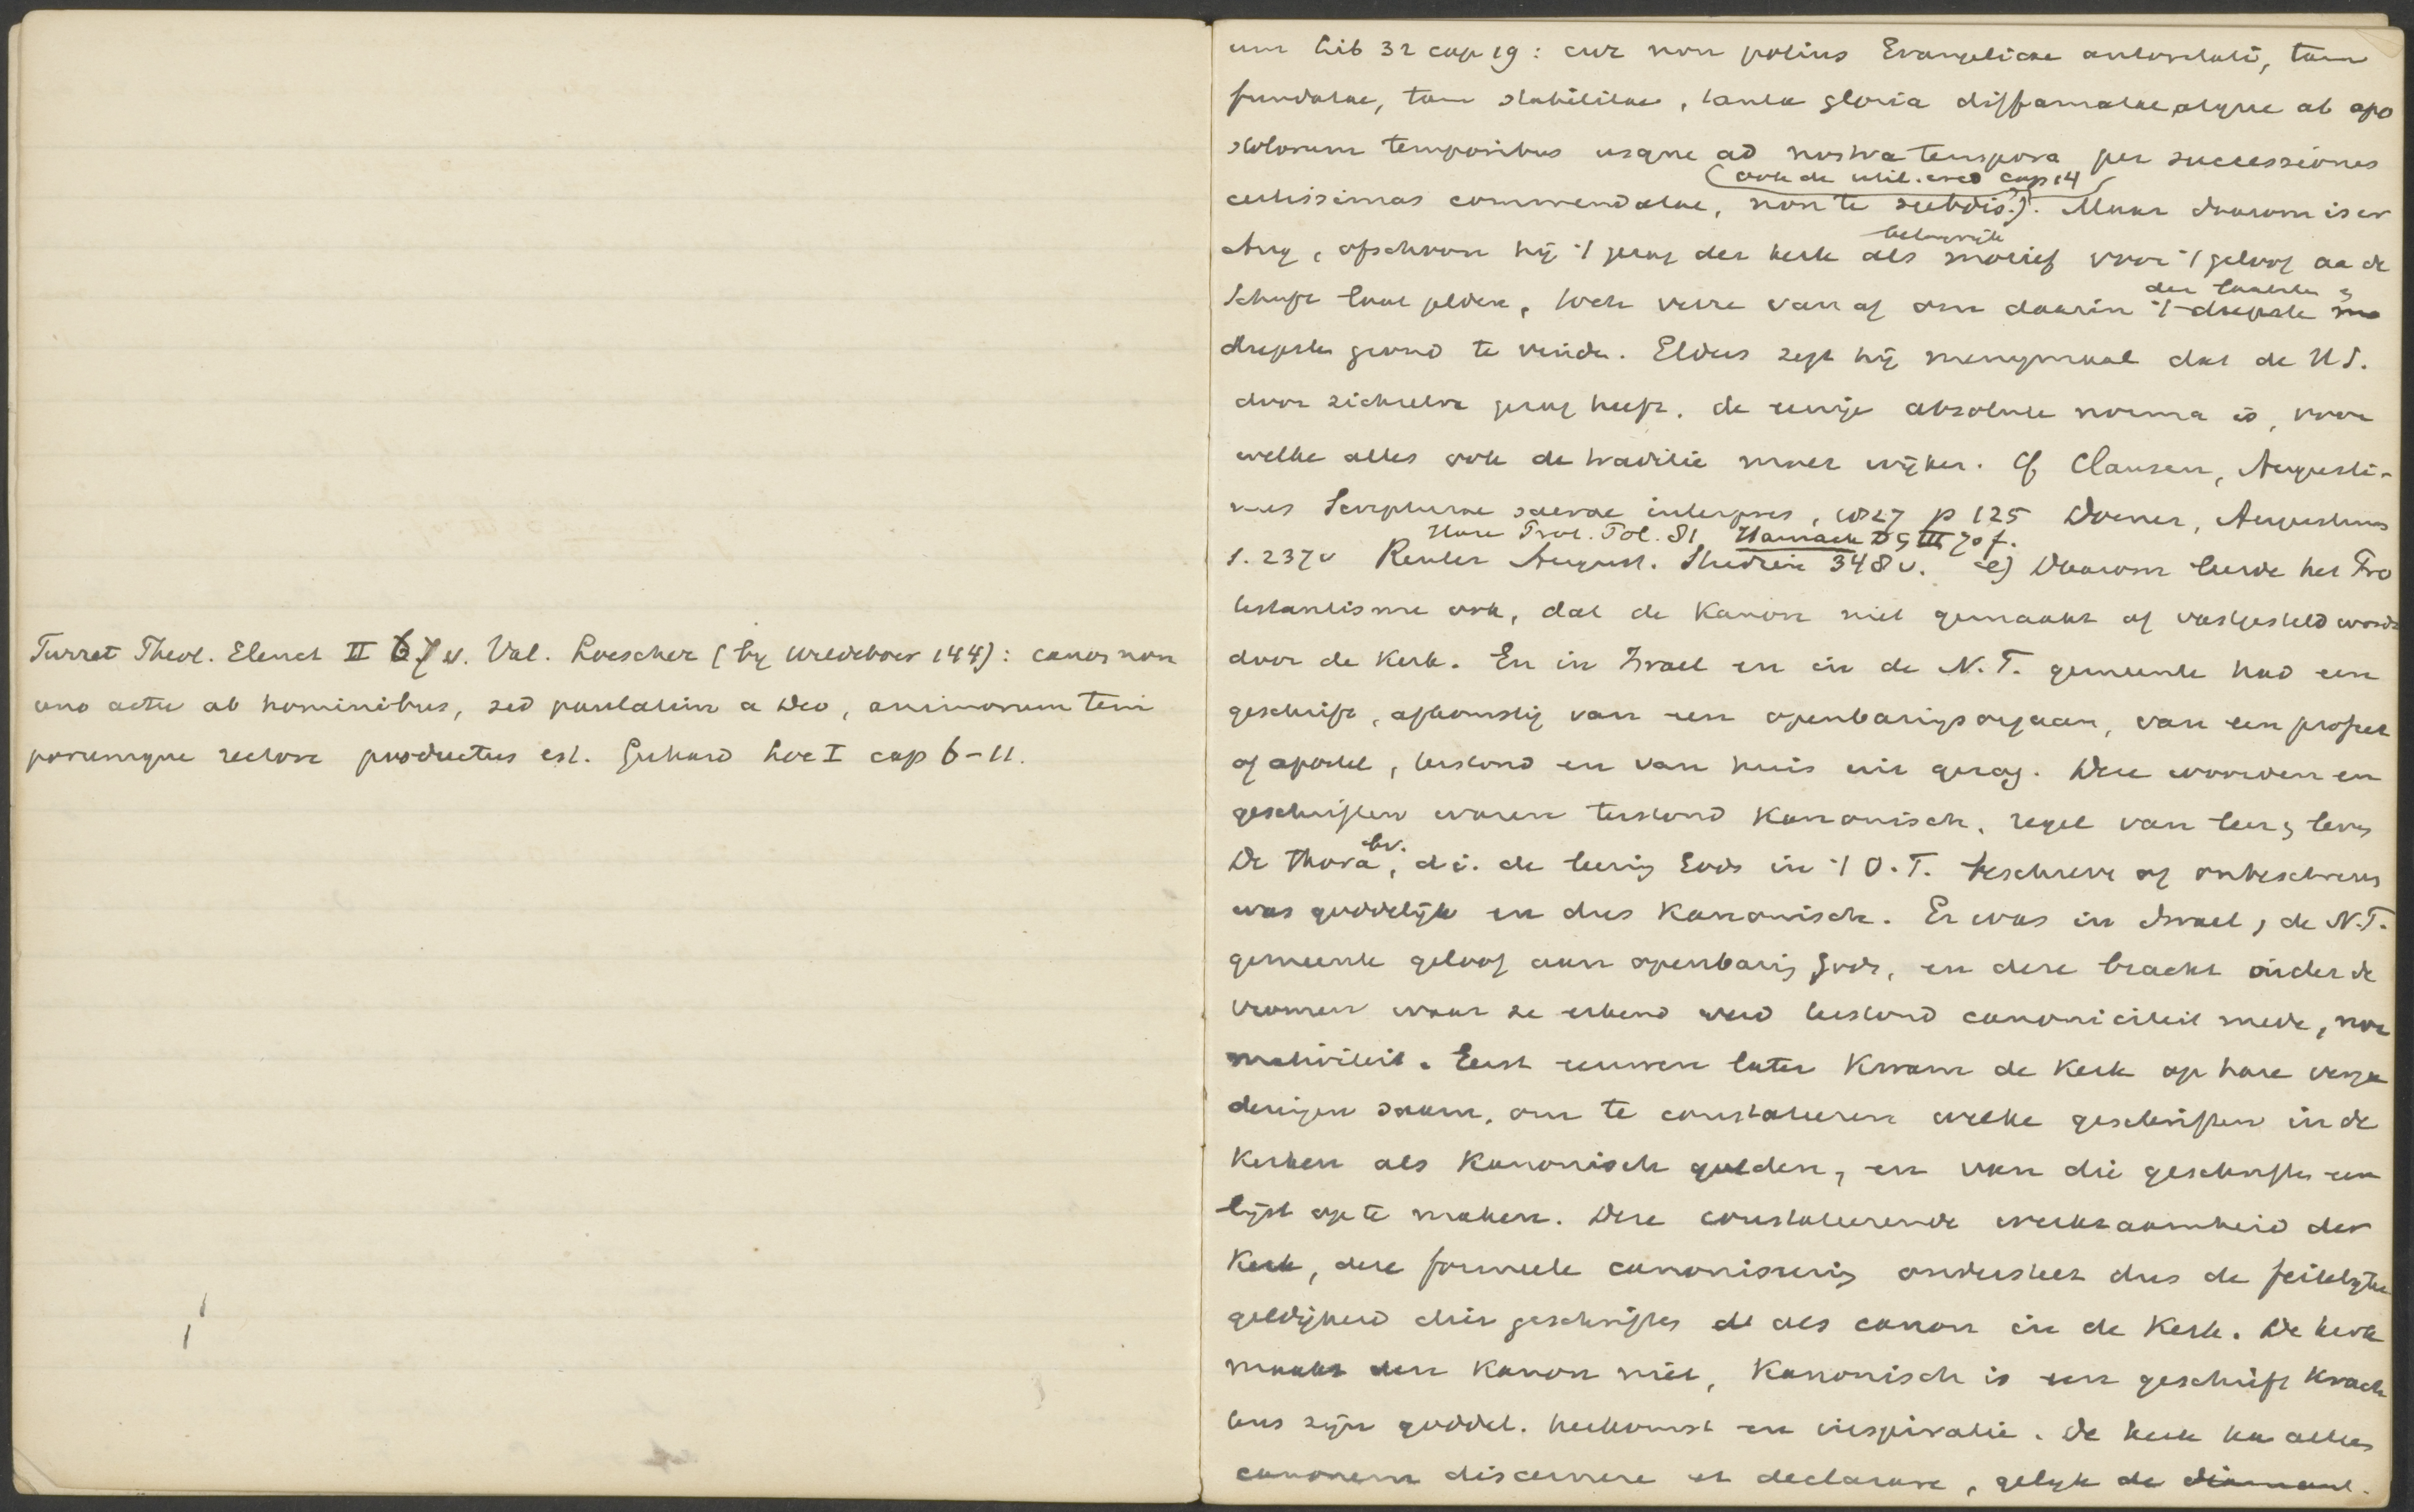 Turret Theol. Elenct II 67 v. Val. Loescher (by Wildeboer 144): canon non
uno actu ab hominibus, sed paulatim a Deo, animorum tem
porumque rectore productus est. Gerhard Loc I cap 6-11.
um lib 32 cap 19: cur non potius Evangelicae autoritati, tam
fundatae, tam stabilitae, tanta gloria diffamatae, atque ab apo
stolorum temporibus usque ad nostra tempora per successiones
(ook de util. cred cap 14)
certissimas commendatae, non te subdis?). Maar daarom is er
belangrijk
Aug, ofschoon hij 't gezag der kerk als motief voor 't geloof aa de
den laatsten
Schrift laat gelden, toch verre van af om daarin 't diepste mo
diepsten grond te vinden. Elders zegt hij menigmaal dat de H S.
door zichzelve gezag heeft, de eenige absolute norma is, voor
welke alles ook de traditie moet wijken. Cf Clausen, Augusti-
nus Scripturae sacrae interpres, 1827 p 125 Dorner, Augustinus
Harnack DG III 70 f.
S. 237v Reuter August. Studien 348v. e) Daarom leerde het Pro
testantisme ook, dat de Kanon niet gemaakt of vastgesteld wordt
door de Kerk. En in Israel en in de N.T. gemeente had een
geschrift, afkomstig van een openbaringsorgaan, van een profeet
of apostel, terstond en van huis uit gezag. Deze woorden en
geschriften waren terstond Kanonisch, regel van leer, leven
bv.
De Thora, d.i. de leering Gods in 't O.T. beschreven of onbeschreven
was goddelijk en dus Kanonisch. Er was in Israel, de N.T.
gemeente geloof aan openbaring Gods, en deze bracht onder de
vromen waar ze erkend werd terstond canoniciteit mede, nor
mativiteit. Eerst eeuwen later kwam de Kerk op hare verga
deringen saam, om te constateeren welke geschriften in de
Kerken als Kanonisch golden, en van die geschriften een
lijst op te maken. Deze constateerende werkzaamheid der
Kerk, deze formeele canoniseering onderstelt dus de feitelijke
geldigheid dier geschriften de als canon in de Kerk. De kerk
maakt den Kanon niet, Kanonisch is een geschrift krach
tens zijn goddel. herkomst en inspiratie. De kerk ka alleen
canonem discernere et declarare, gelijk de diamant.